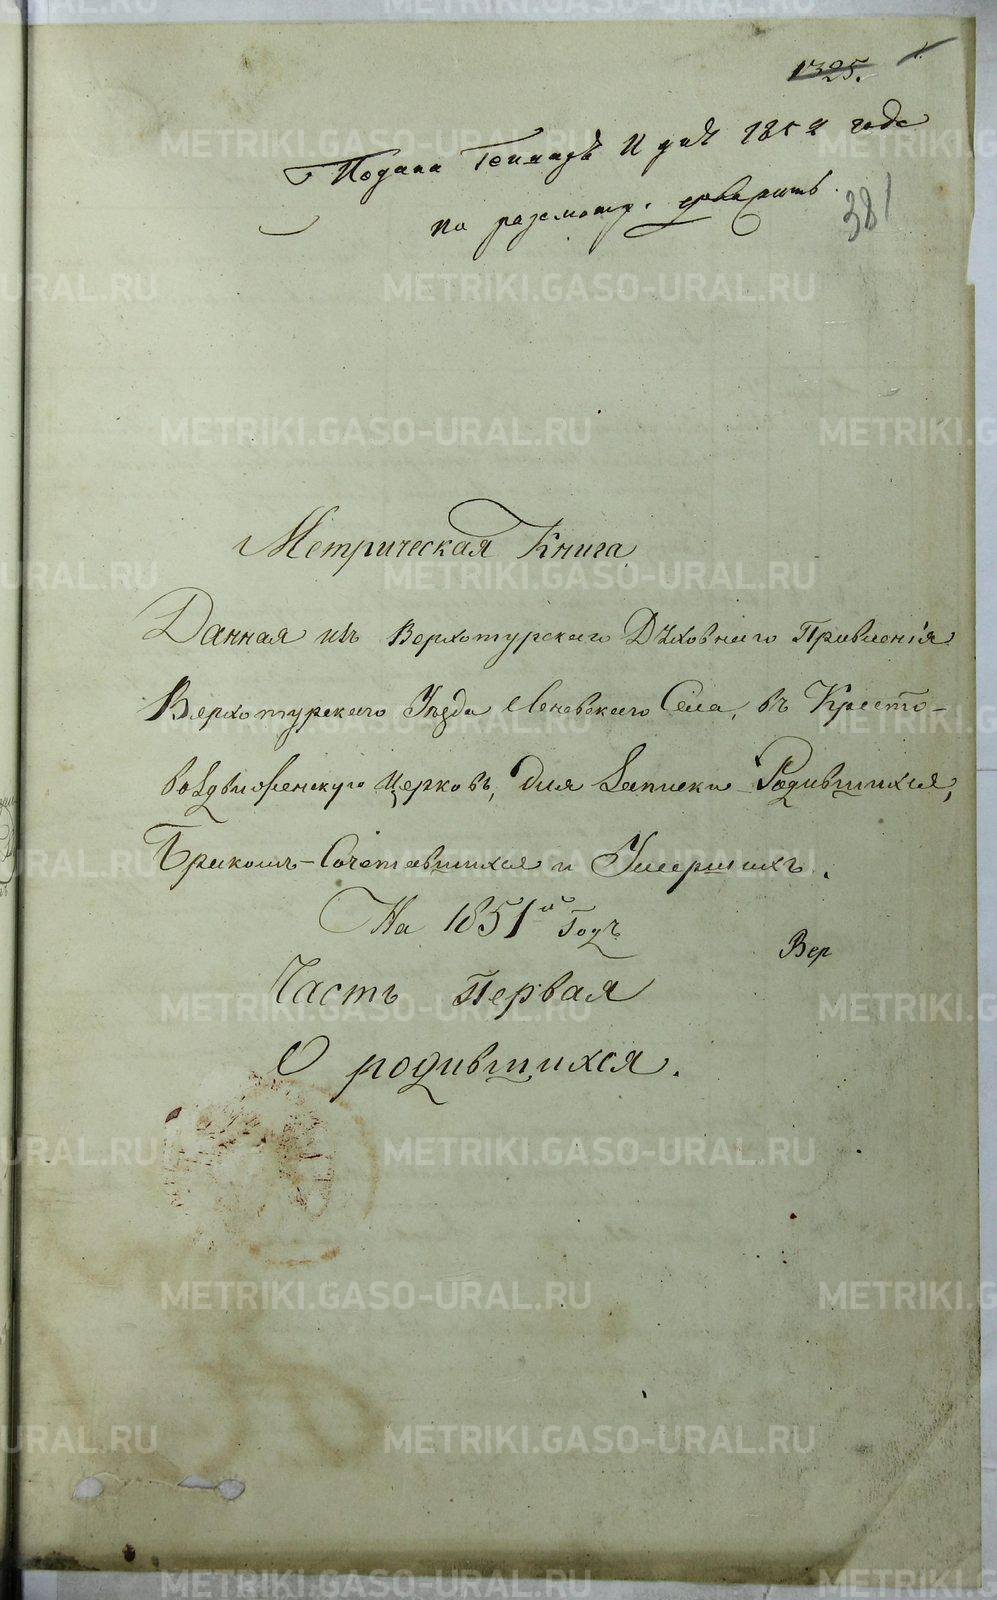 1325.
Подана Генваря 11 дня 1852 года
по разсмотр.
381
Метрическая Книга
Данная изъ Верхотурскаго Дꙋховнаго Правленія
Верхотурскаго Уѣзда Меневскаго Села, въ Кресто-
воздвиженскую церковь, для Записки Родившихся,
Бракомъ-Сочетавшихся и Умершихъ.
На 1851й Годъ
Вер
Часть Первая
О родившихся.
METRIKI.GASO-URAL.RU